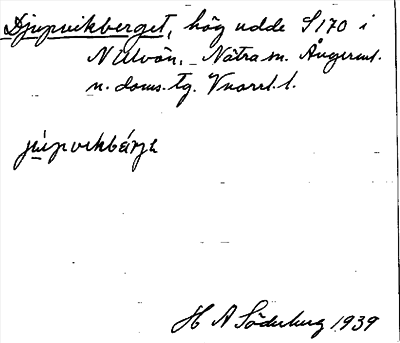 Djupvikberget, hög udde S170 i
N Ulvön, Nätra sn. Ångerml.
n. doms. tg. Vnorrl. l.
H A Söderberg 1939